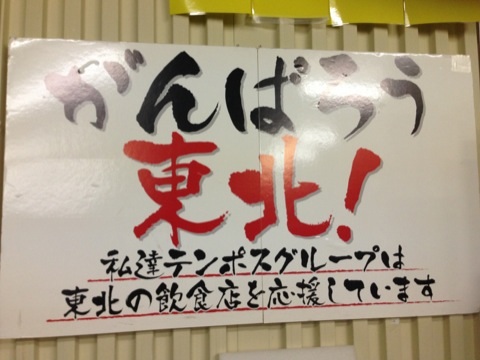 がんばろう
東北!
私達テンポスグループは
東北の飲食店を応援しています